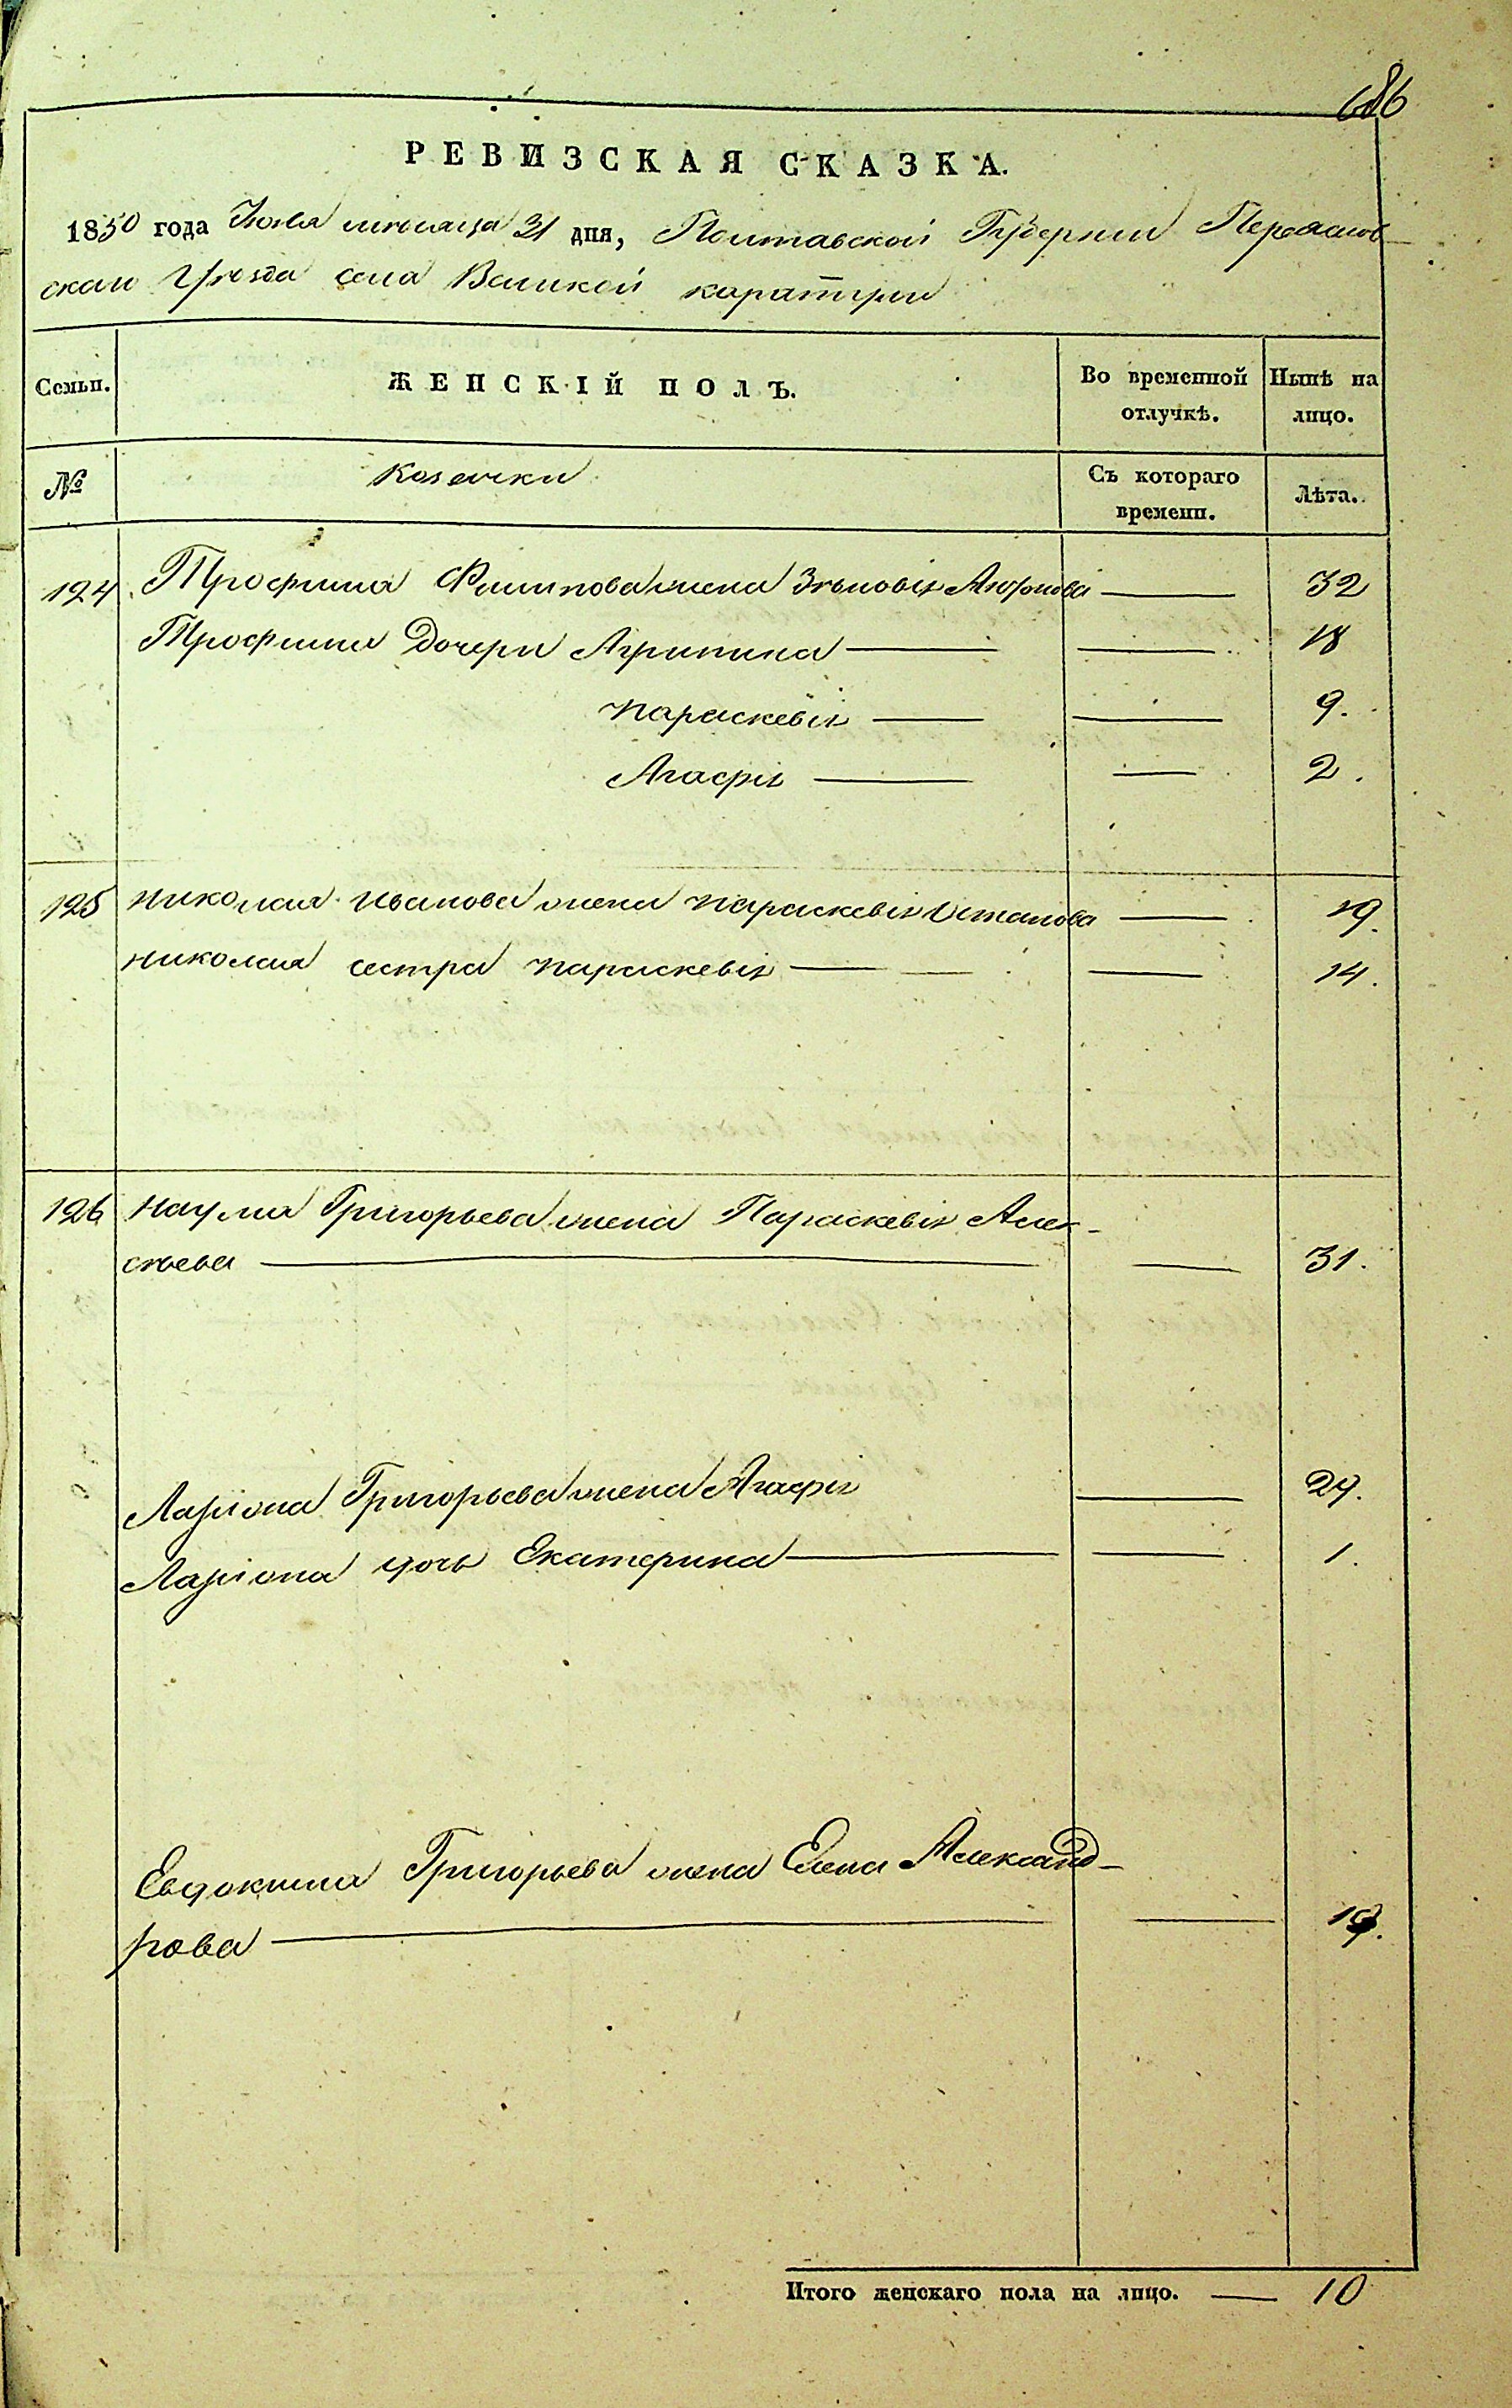 686
РЕВИЗСКАЯ СКАЗКА.
1850 года Июля мѣсяца 31 дня, Полтавской Губерніи Переяслов-
скаго Уѣзда села Великой каратули
Семьи. ЖЕНСКІЙ ПОЛЪ. Во временной отлучкѣ. Нынѣ на лицо.
№ Козачки Съ котораго времени. Лѣта.
124 Трофима Филипова жена Зѣновія — 32
Трофима Дочери Агрипина — — 18
Параскевія — — 9.
Агафія — — 2.
125 Николая Иванова жена Параскевія — 19.
Николая сестра Параскевія — — 14.
126 Наума Григорьева жена Параскевія Алек-
сѣева — — 31.
Ларіона Григорьева жена Агафія — 29.
Ларіона дочь Екатерина — — 1.
Евдокима Григорьева жена Елена Александ-
рова — — 19.
Итого женскаго пола на лицо. — 10